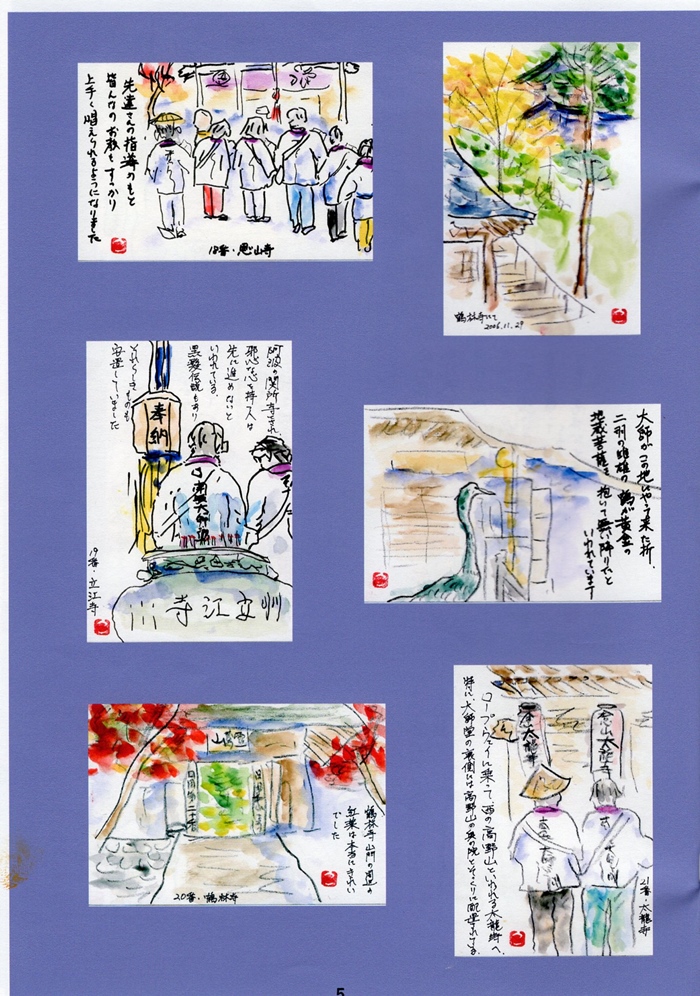 先達さんの指導のもと
皆んなの お経も すっかり
上手く 唱えられるようになりました
18番・恩山寺
鶴林寺にて
2006.11.29
阿波の関所寺とされ
邪心な心を持つ人は
先に進めないと
いわれている.
黒髪伝説もあり
それらしきものも
安置していました
奉納
南無大師遍
川寺江立州
19番・立江寺
大師がこの地にやって来た折.
二羽の雌雄の鶴が黄金の
地蔵菩薩を抱いて舞い降りたと
いわれています
鶴林寺 山門の周辺の
紅葉は本当にきれい
でした
20番・鶴林寺
ロープウェイに乗って西の高野山といわれる太龍寺へ.
特に、大師堂の裏側には高野山の奥の院とそっくりに配置されている.
21番・太龍寺
5